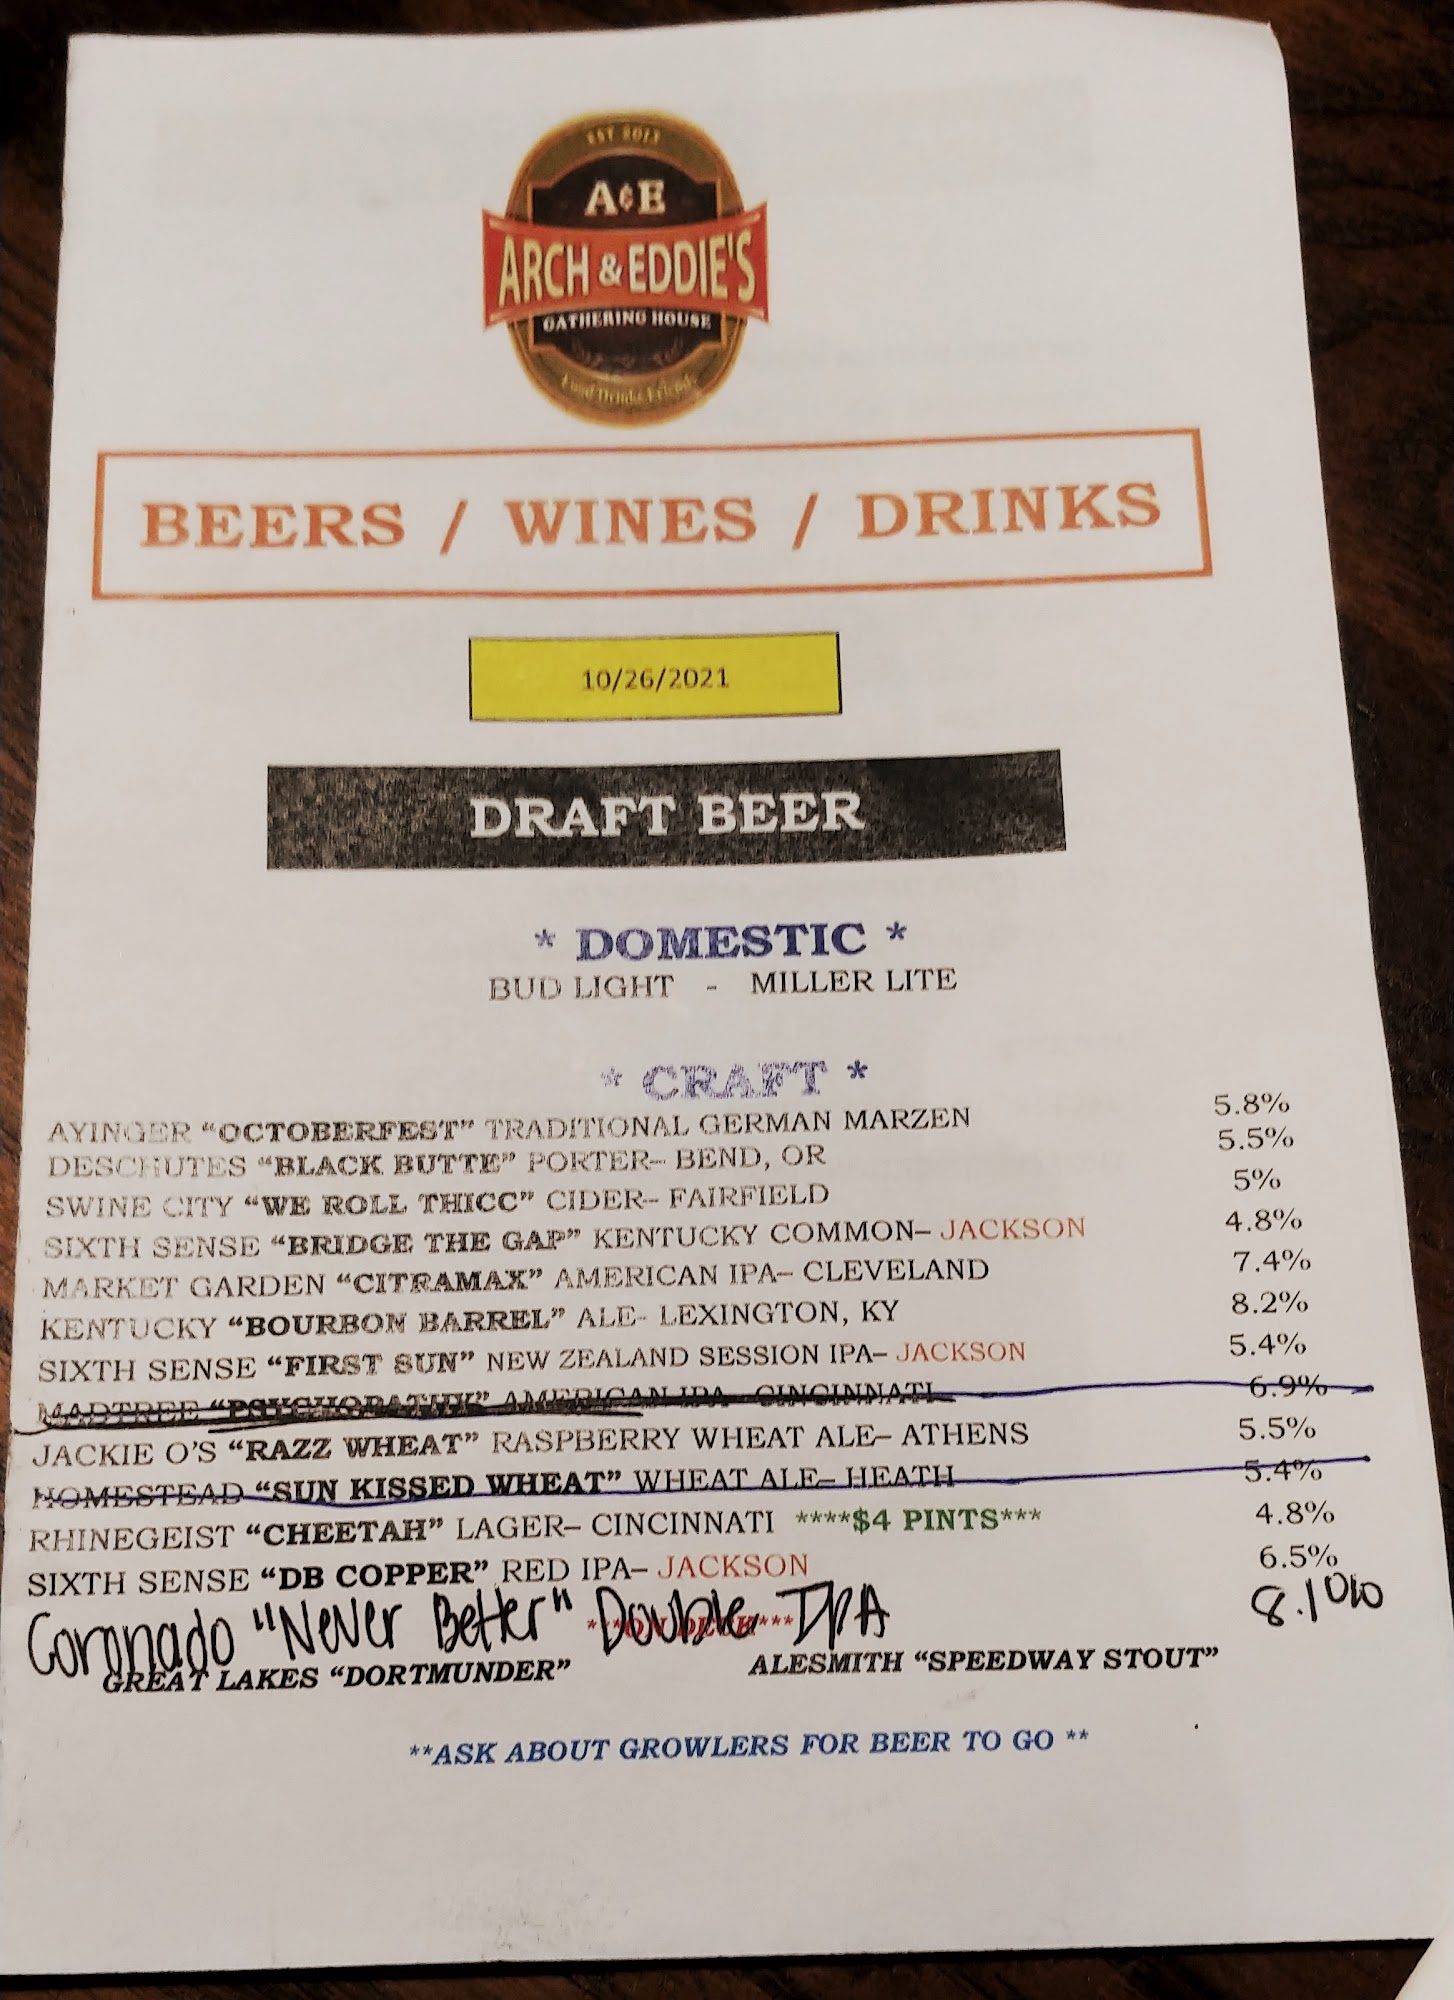 EST 2013
A&E
ARCH & EDDIE'S
GATHERING HOUSE
Food Drinks Friends
BEERS / WINES / DRINKS
10/26/2021
DRAFT BEER
* DOMESTIC *
BUD LIGHT - MILLER LITE
* CRAFT *
AYINGER “OCTOBERFEST” TRADITIONAL GERMAN MARZEN 5.8%
DESCHUTES “BLACK BUTTE” PORTER– BEND, OR 5.5%
SWINE CITY “WE ROLL THICC” CIDER– FAIRFIELD 5%
SIXTH SENSE “BRIDGE THE GAP” KENTUCKY COMMON– JACKSON 4.8%
MARKET GARDEN “CITRAMAX” AMERICAN IPA– CLEVELAND 7.4%
KENTUCKY “BOURBON BARREL” ALE- LEXINGTON, KY 8.2%
SIXTH SENSE “FIRST SUN” NEW ZEALAND SESSION IPA– JACKSON 5.4%
MADTREE “PSYCHOPATHY” AMERICAN IPA– CINCINNATI 6.9%
JACKIE O'S “RAZZ WHEAT” RASPBERRY WHEAT ALE– ATHENS 5.5%
HOMESTEAD “SUN KISSED WHEAT” WHEAT ALE– HEATH 5.4%
RHINEGEIST “CHEETAH” LAGER– CINCINNATI ****$4 PINTS*** 4.8%
SIXTH SENSE “DB COPPER” RED IPA– JACKSON 6.5%
Coronado "Never Better" Double IPA 8.1%
***ON DECK***
GREAT LAKES “DORTMUNDER” ALESMITH “SPEEDWAY STOUT”
**ASK ABOUT GROWLERS FOR BEER TO GO **